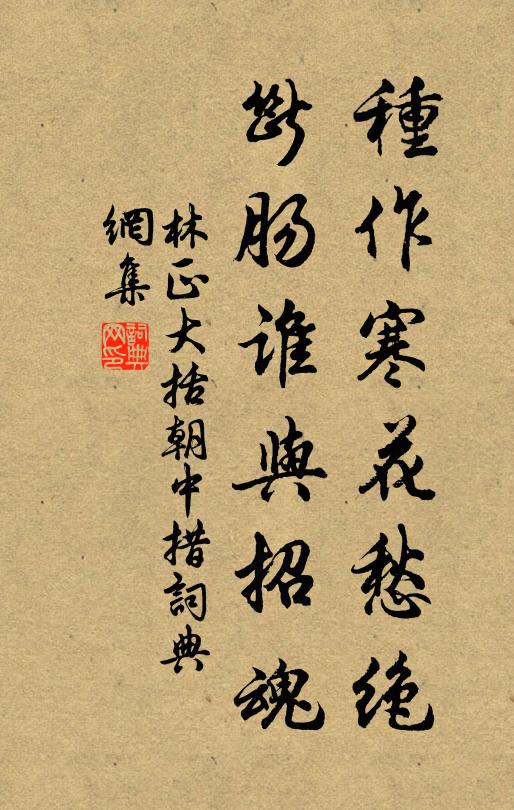 種作寒花愁絶
斷腸誰與招魂
林正大括朝中措詞典
網集
詞典網印